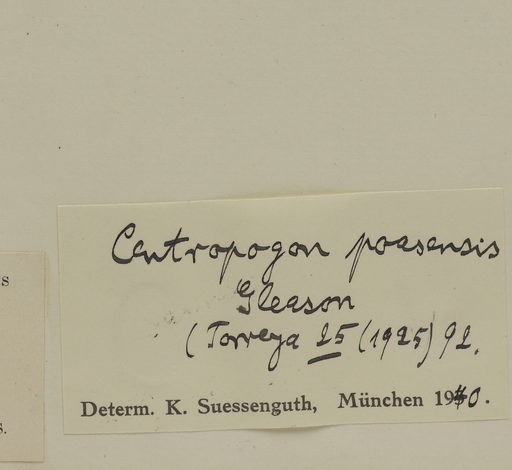 Centropogon poasensis
Gleason
(Torreya 25 (1925) 92.
Determ. K. Suessenguth, München 1940.
s
s.